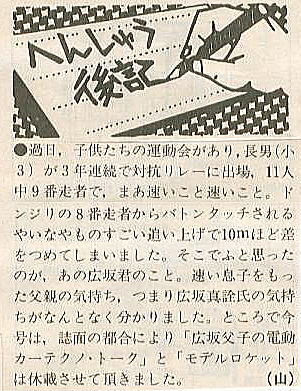 へんしゅう
後記
●過日，子供たちの運動会があり，長男（小
3）が3年連続で対抗リレーに出場，11人
中9番走者で，まあ速いこと速いこと。ド
ンジリの8番走者からバトンタッチされる
やいなやものすごい追い上げで10mほど差
をつめてしまいました。そこでふと思った
のが，あの広坂君のこと。速い息子をもっ
た父親の気持ち，つまり広坂真詮氏の気持
ちがなんとなく分かりました。ところで今
号は，誌面の都合により「広坂父子の電動
カーテクノ・トーク」と「モデルロケット」
は休載させて頂きました。（山）